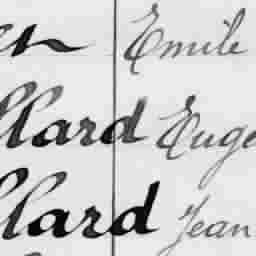 en Emile
llard Euge
llard Jean